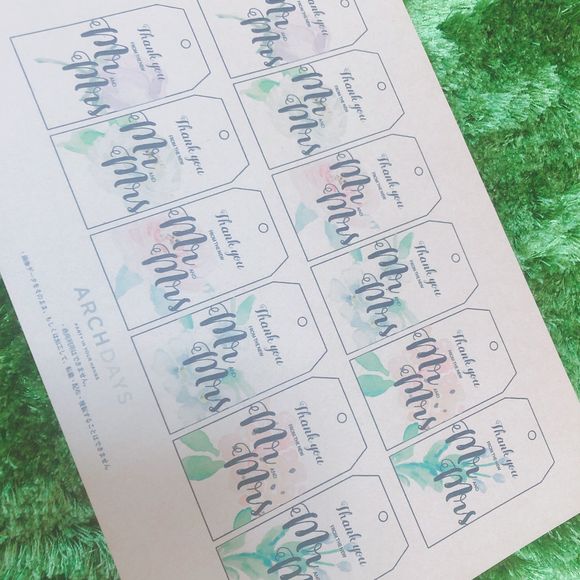 Thank you
FROM THE NEW
Mr
AND
Mrs
Thank you
FROM THE NEW
Mr
AND
Mrs
Thank you
FROM THE NEW
Mr
AND
Mrs
Thank you
FROM THE NEW
Mr
AND
Mrs
Thank you
FROM THE NEW
Mr
AND
Mrs
Thank you
FROM THE NEW
Mr
AND
Mrs
Thank you
FROM THE NEW
Mr
AND
Mrs
Thank you
FROM THE NEW
Mr
AND
Mrs
Thank you
FROM THE NEW
Mr
AND
Mrs
Thank you
FROM THE NEW
Mr
AND
Mrs
Thank you
FROM THE NEW
Mr
AND
Mrs
Thank you
FROM THE NEW
Mr
AND
Mrs
ARCHDAYS
することはできません